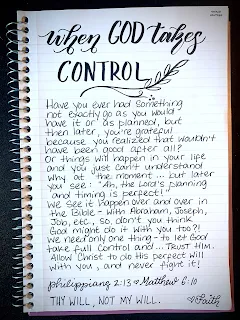 when GOD takes
CONTROL
Have you ever had something
not exactly go as you would
have it or as planned, but
then later, you're grateful
because you realized that wouldn't
have been good after all?
Or things will happen in your life
and you just can't understand
why at the moment... but later
you see: "Ah, the Lord's planning
and timing is perfect!"
We see it happen over and over in
the Bible - with Abraham, Joseph,
Job, etc., so don't you think
God might do it with you too?!
We need only one thing - to let God
take full control and... TRUST HIM.
Allow Christ to do His perfect will
with you, and never fight it!
philippians 2:13 Matthew 6:10
THY WILL, NOT MY WILL.
Faith